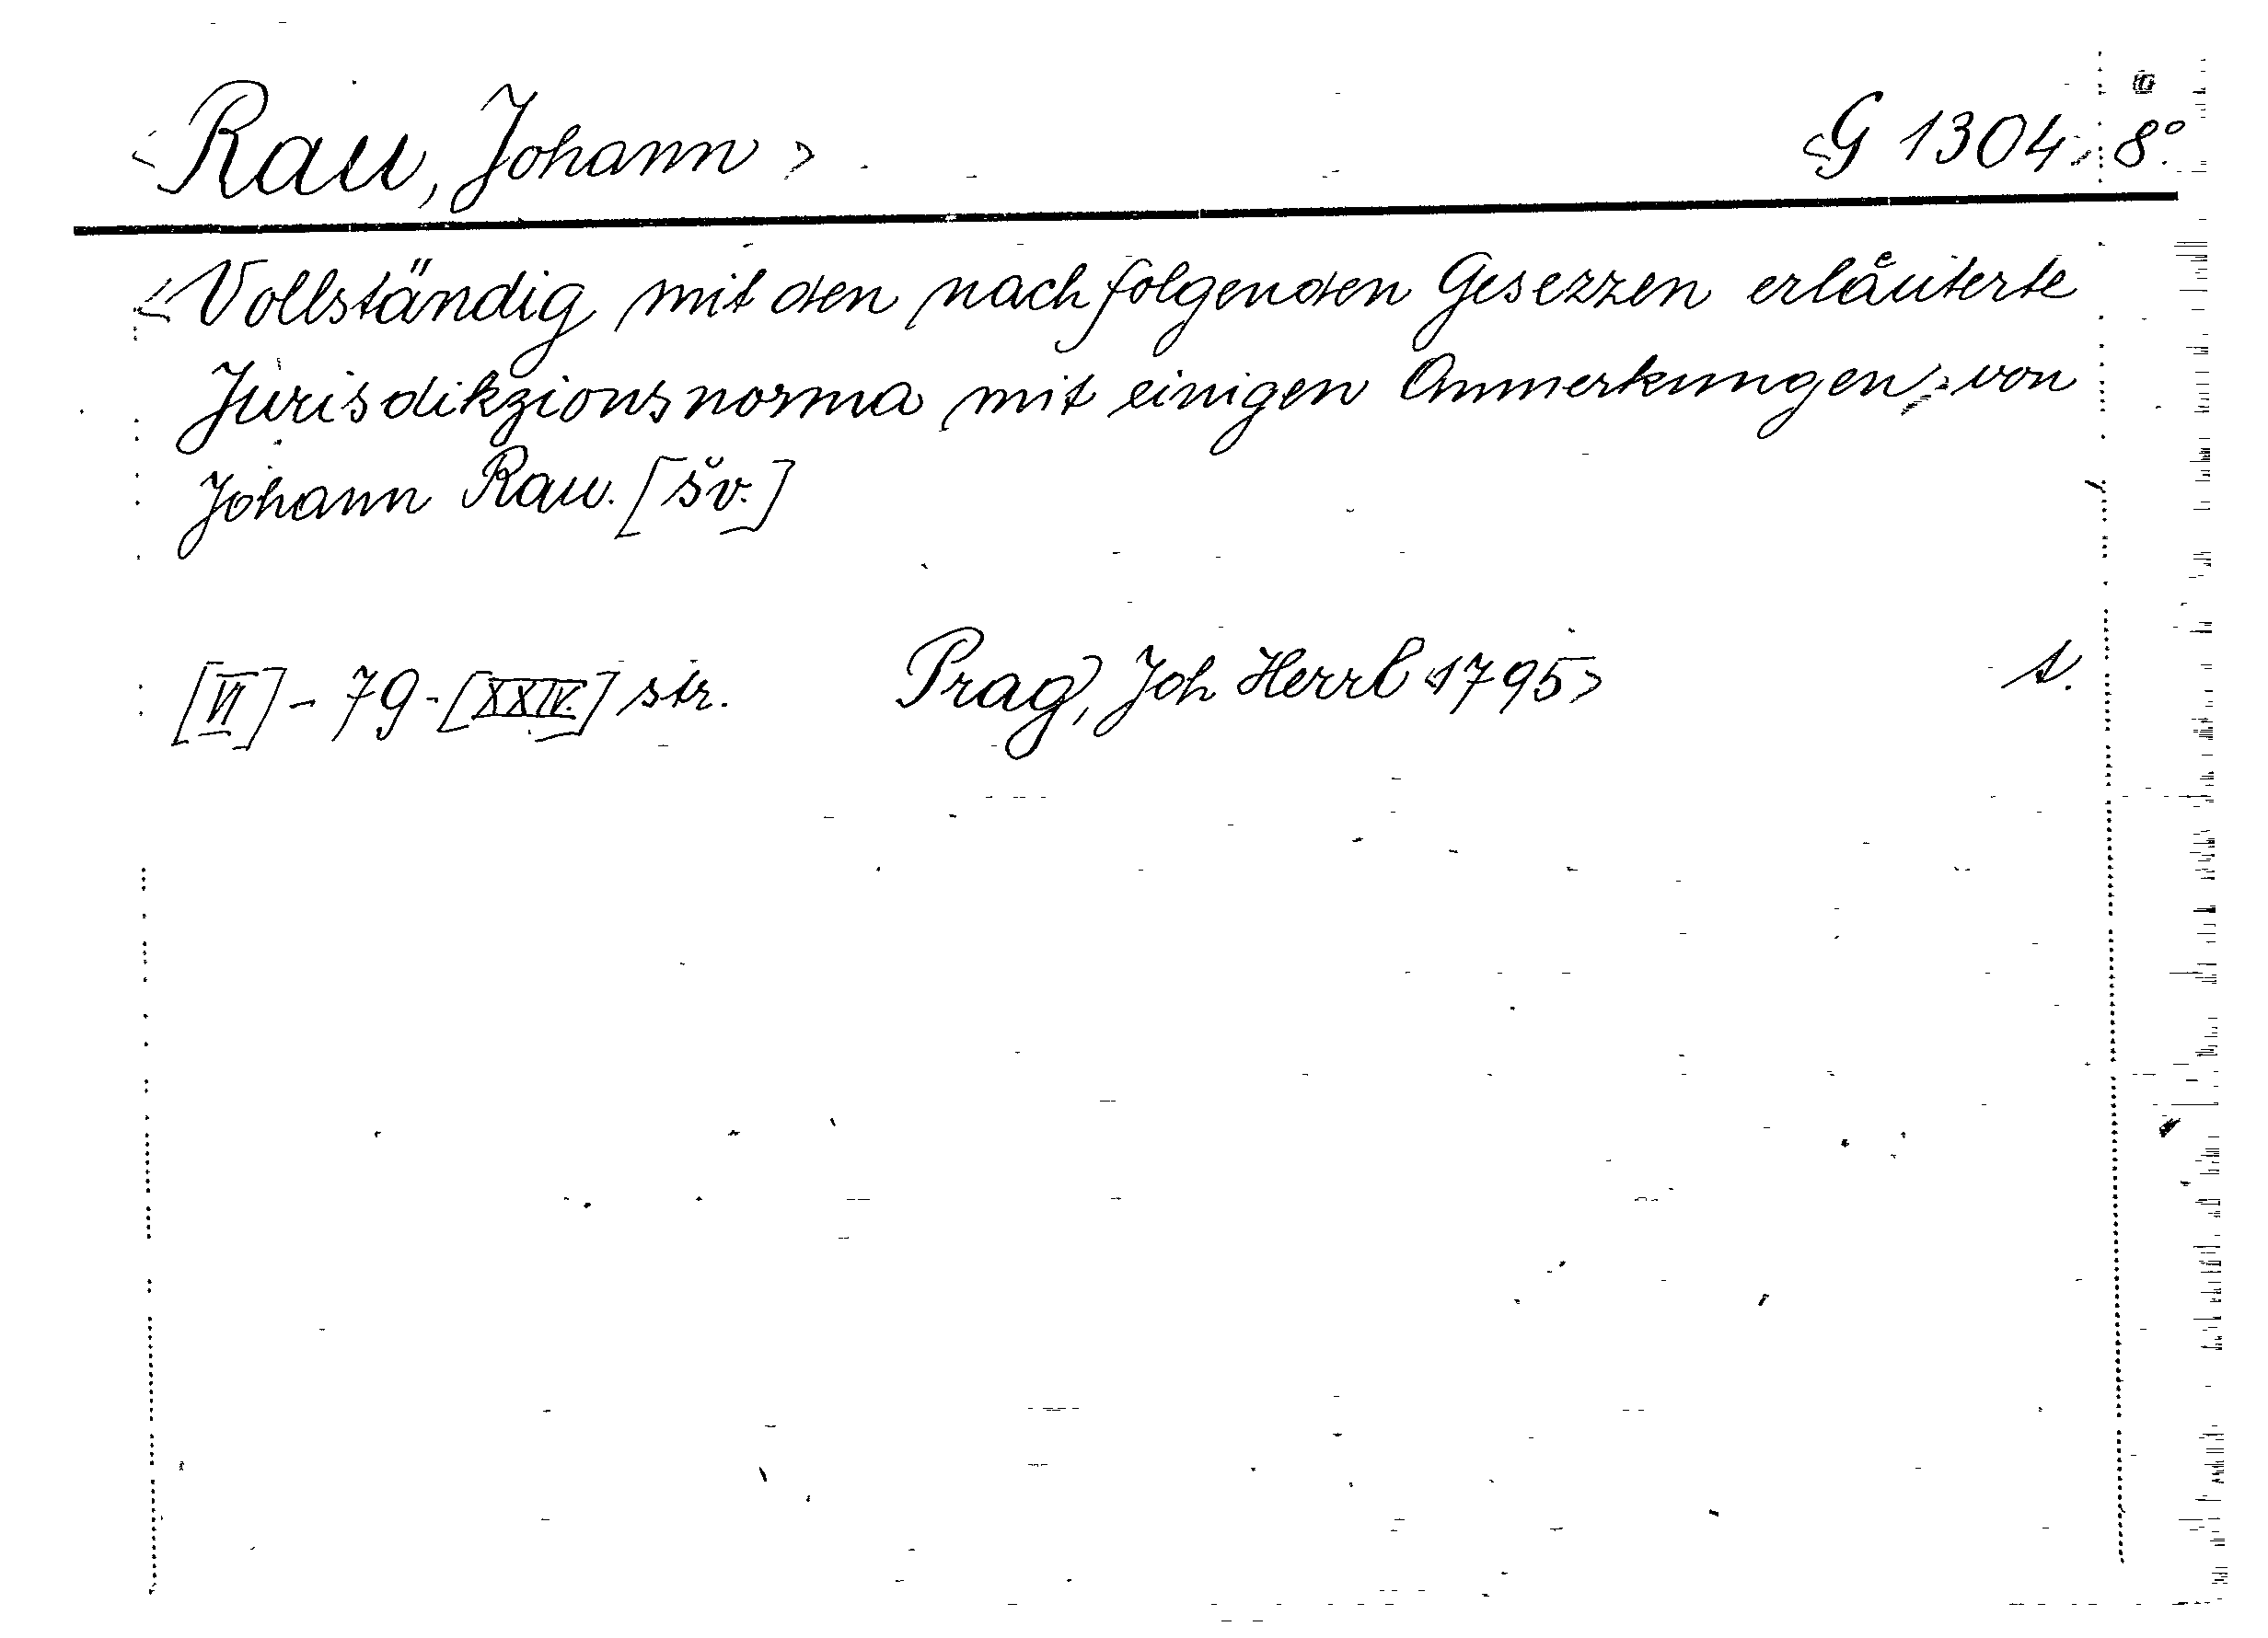 <Rau, Johann> <G 1304> 8°
<Vollständig mit den nachfolgenden Gesezzen erlaͤuterte
Jurisdikzionsnorma mit einigen Anmerkungen> von
Johann Rau. [šv.]
[VI] - 79 - [XXIV.] str. Prag, Joh Herrl <1795> t.